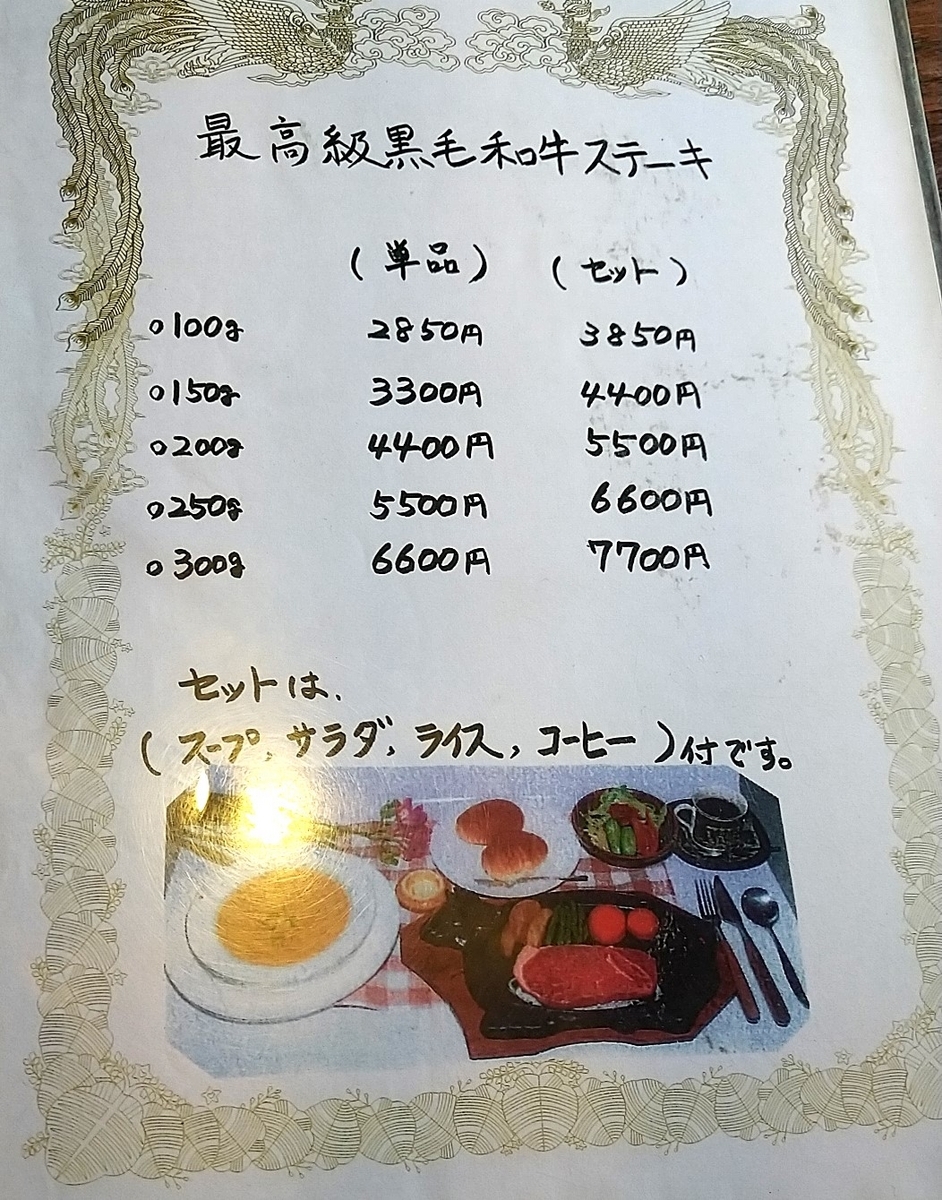 最高級黒毛和牛ステーキ
(単品) (セット)
○100g 2850円 3850円
○150g 3300円 4400円
○200g 4400円 5500円
○250g 5500円 6600円
○300g 6600円 7700円
セットは、
(スープ, サラダ, ライス, コーヒー)付です。